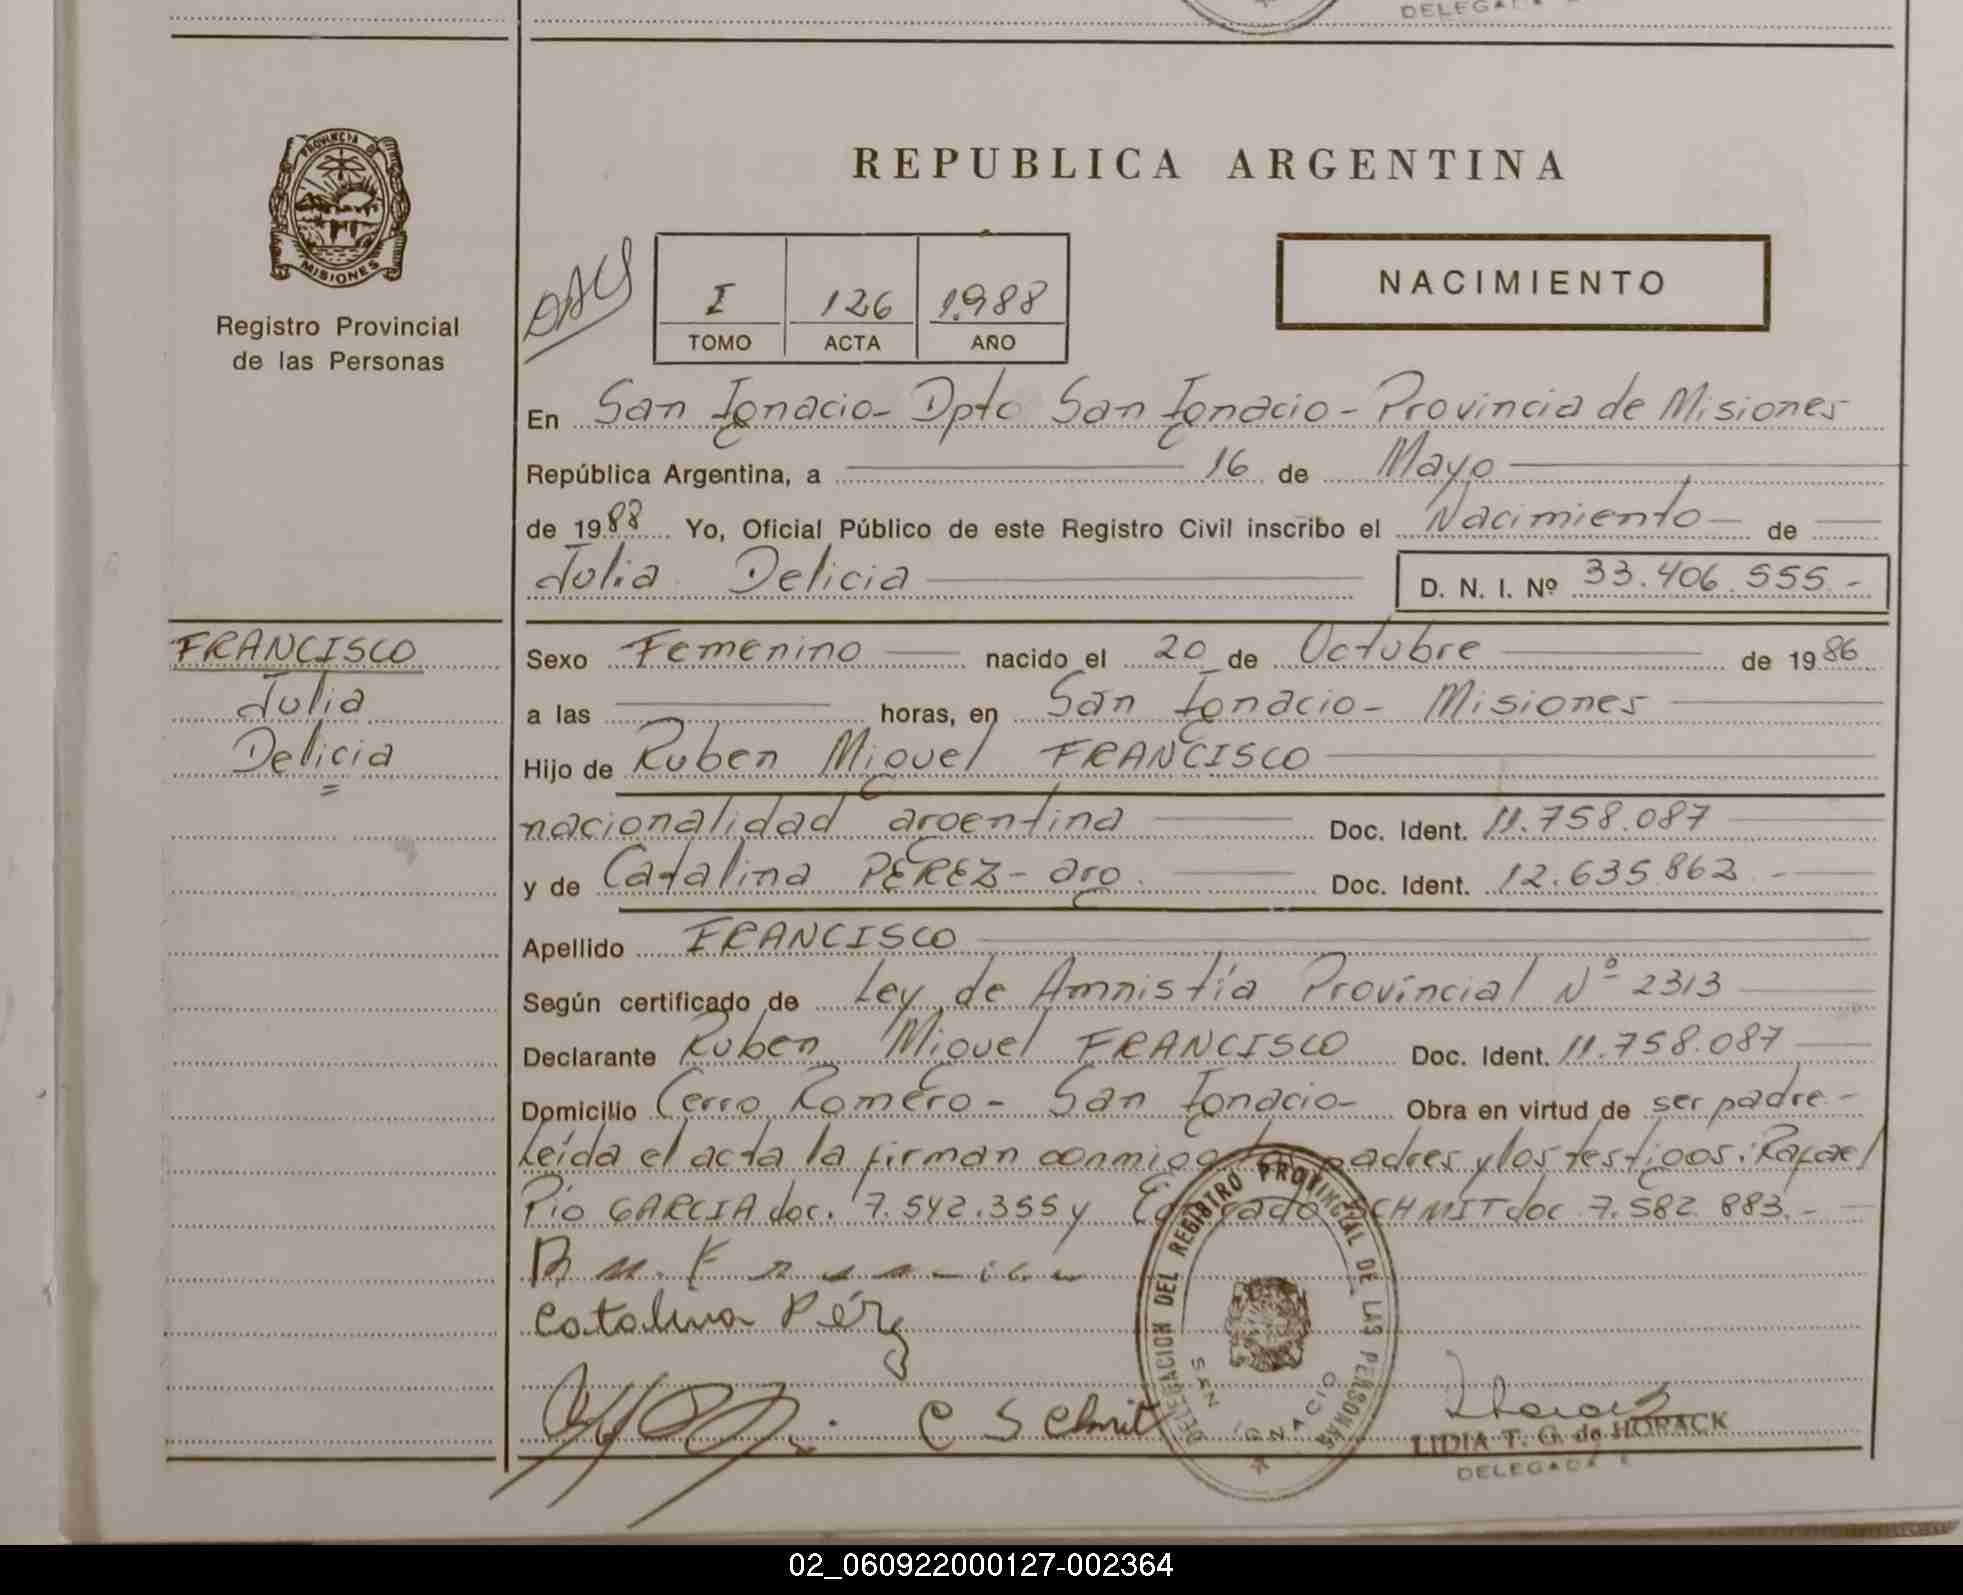 DELEGADA
PROVINCIA DE
MISIONES
Registro Provincial
de las Personas
REPUBLICA ARGENTINA
NACIMIENTO
I 126 1.988
TOMO ACTA AÑO
En San Ignacio - Dpto San Ignacio - Provincia de Misiones
República Argentina, a 16 de Mayo
de 1988 Yo, Oficial Público de este Registro Civil inscribo el Nacimiento de
Julia Delicia D. N. I. Nº 33.406.555.-
FRANCISCO
Julia
Delicia
Sexo Femenino nacido el 20 de Octubre de 1986
a las horas, en San Ignacio - Misiones
Hijo de Ruben Miguel FRANCISCO
nacionalidad argentina Doc. Ident. 11.758.087
y de Catalina PEREZ - arg. Doc. Ident. 12.635.862 -
Apellido FRANCISCO
Según certificado de Ley de Amnistía Provincial Nº 2313
Declarante Ruben Miguel FRANCISCO Doc. Ident. 11.758.087
Domicilio Cerro Romero - San Ignacio - Obra en virtud de ser padre -
Leída el acta la firman conmigo los padres y los testigos: Rafael
Pío GARCIA doc. 7.542.355 y SCHMIT doc 7.582.883.-
Catalina Pérez
C Schmit
DELEGACION DEL REGISTRO PROVINCIAL DE LAS PERSONAS
SAN IGNACIO
LIDIA T. G. de HORACK
DELEGADA
02_060922000127-002364